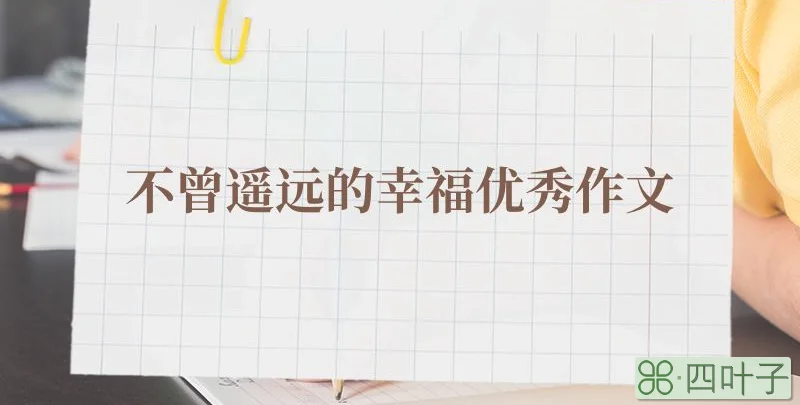 不曾遥远的幸福优秀作文
四叶子